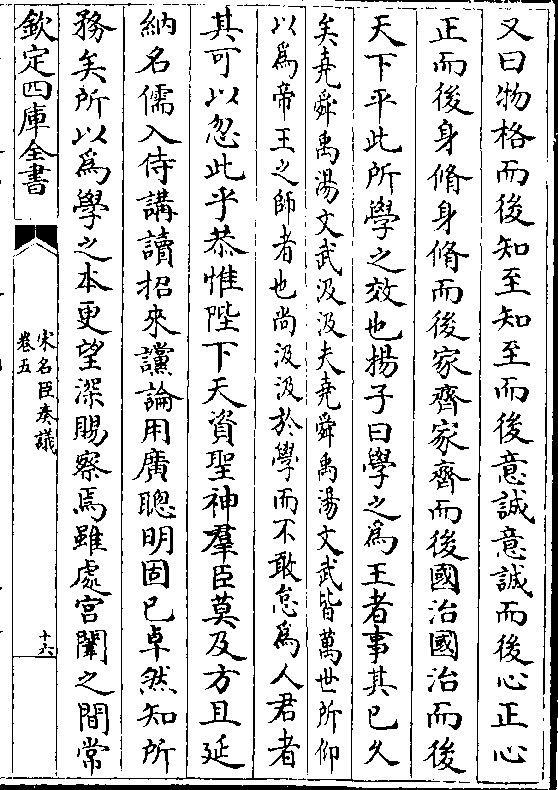 又曰物格而後知至知至而後意誠意誠而後心正心
正而後身脩身脩而後家齊家齊而後國治國治而後
天下平此所學之效也揚子曰學之為王者事其已久
矣堯舜禹湯文武汲汲夫堯舜禹湯文武皆萬世所仰
以為帝王之師者也尚汲汲於學而不敢怠為人君者
其可以忽此乎恭惟陛下天資聖神羣臣莫及方且延
納名儒入侍講讀招來讜論用廣聰明固已卓然知所
務矣所以為學之本更望深賜察焉雖處宮闈之間常
欽定四庫全書
宋名臣奏議
卷五
十六